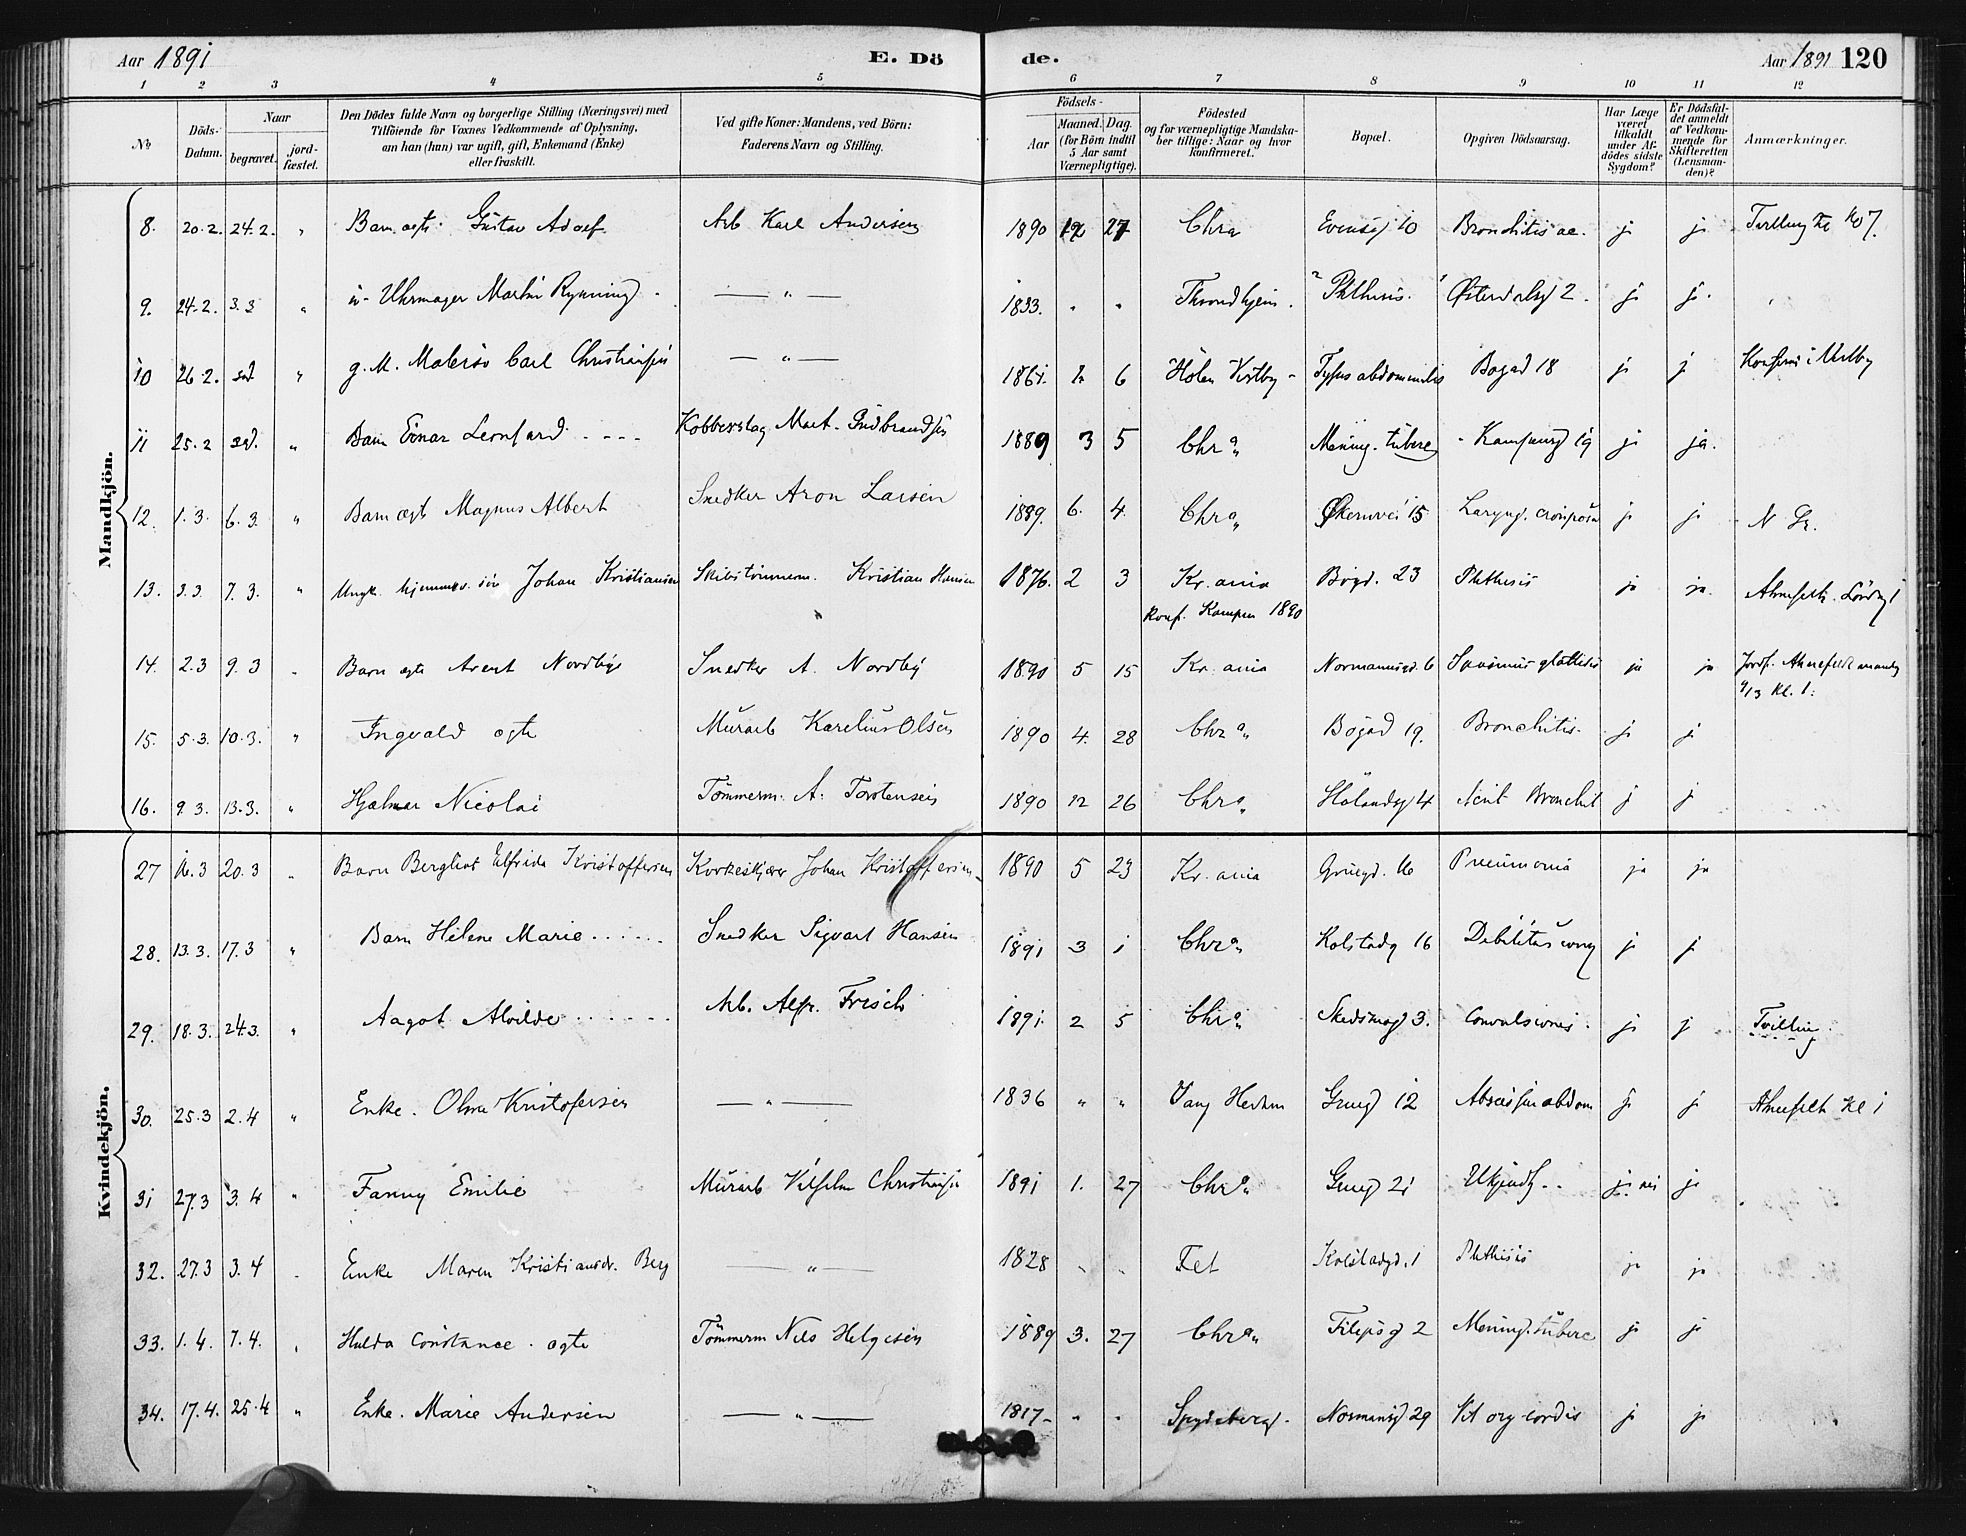 Aar 1891 E. Dö de. Aar 1891 120
1 2 3 4 5 6 7 8 9 10 11 12
№
Döds-Datum.
Naar
begravet.
jordfæstet.
Den Dödes fulde Navn og borgerlige Stilling (Næringsvei) med
Tilföiende for Voxnes Vedkommende af Oplysning,
om han (hun) var ugift, gift, Enkemand (Enke)
eller fraskilt.
Ved gifte Koner: Mandens, ved Börn:
Faderens Navn og Stilling.
Födsels-
Aar
Maaned. Dag.
(for Börn indtil
5 Aar samt
Værnepligtige).
Födested
og for værnepligtige Mandskaber tillige: Naar og hvor
konfirmeret.
Bopæl.
Opgiven Dödsaarsag.
Har Læge
været
tilkaldt
under Afdödes sidste
Sygdom?
Er Dödsfaldet anmeldt
af Vedkommende for
Skifteretten
(Lensmanden)?
Anmærkninger.
Mandkjön.
8. 20.2. 24.2. " Barn ægte Gustav Adolf Arb Karl Andersen 1890 12 27 Chra 10 Bronchitis ac. j j
9. 24.2. 3.3 " Uhrmager Martin Rynning — " — 1833. " " Throndhjem. Phthisis. Østerdalsgd 2. j j.
10 26.2. " g. M. Carl Christiansen — " — 1861. 6 Hölen Vestby Tyfus abdominalis Bogad 18 j j
11 25.2 " Barn Einar Leonhard Kobberslag Mart. Gudbrandsen 1889 3 5 Chra " Mening. tuberc Kampengd 19 j ja.
12. 1.3. 6.3. " Barn ægt Magnus Albert Snedker Aron Larsen 1889. 6. 4. Chra " Økernvei 15 Laryng. crouposa j j
13. 3.3. 7.3. " Ungk. Johan Kristiansen Skibstömmerm. Kristian Hansen 1876. 2 3 Kr.ania Bögd. 23 Phthisis ja ja.
konf. Kampen 1890
14. 2.3 9.3 " Barn ægte Arent Nordbye Snedker A. Nordby 1890 5 15 Kr.ania Normannsgd. 6 Spasmus glottidis ja ja
9/3 Kl. 1.
15. 5.3. 10.3. " Ingvald ægte Murarb Karelius Olsen 1890 4. 28 Chra " Bögad 19. Bronchitis. j j
16. 9.3. 13.3. " Hjalmar Nicolai Tömmerm. A. Torstensen 1890 12 26 Chra " Hölandsg 4 Acut Bronchit j j
Kvindekjön.
27 16.3 20.3 " Barn Bergliot Elfrida Kristoffersen Korkeskjærer Johan Kristoffersen 1890 5 23 Kr.ania Grüegd. 16 Pneumonia ja ja
28. 13.3. 17.3 " Barn Helene Marie Snedker Sigvart Hansen 1891 3 1 Chra " Kolstadg 16 Debilitas cong j j
29. 18.3. 24.3. " Aagot Alvilde Arb. Alfr. Frisch 1891. 2 5 Chra " Skedsmogd 3. Convulsiones. j j Tvilling
30. 25.3 2.4 " Enke. Oline Kristofersen — " — 1836 " " Vang Hedem Grüegd 12 j j Kl 1
31 27.3 3.4 " Fanny Emilie Murarb Vilhelm Christiansen 1891 1. 27 Chra " Grüegd 21 Ukjendt j. nei j
32. 27.3 3.4 " Enke Maren Kristiansdr. Berg — " — 1828 " " Fet Kolstadgd. 1 Phthisis ja ja
33. 1.4. 7.4. " Hulda Constance. ægte Tömmerm Nils Helgesen 1889 3. 27 Chra " Filipsg 2 Mening. tuberc j j
34. 17.4. 25.4 " Enke. Marie Andersen — " — 1817 " " Spydeberg. Normansgd 29 Vit org cordis j j